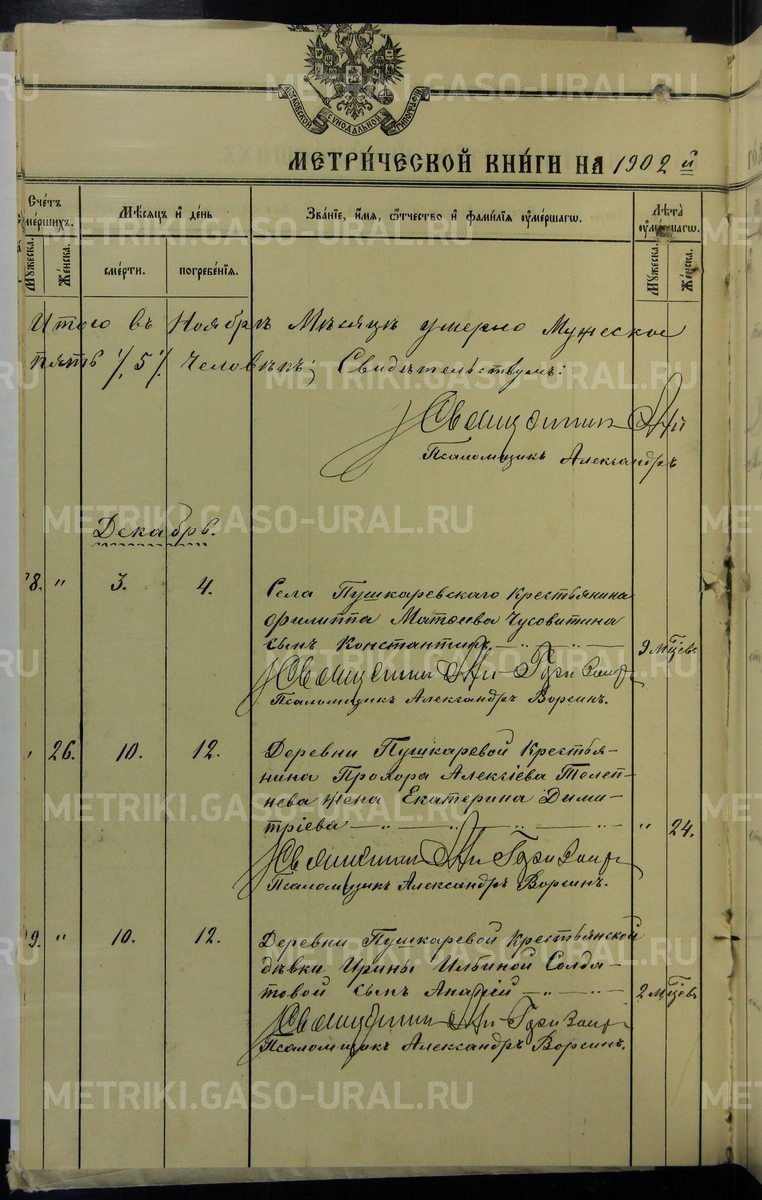 МОСКОВСКОЙ СѴНОДАЛЬНОЙ ТИПОГРАФІИ
МЕТРИ́ЧЕСКОЙ КНИ́ГИ НА 1902 й
Счéтъ умéршихъ.
Мѣ́сяцъ и҆ дéнь
Звáнїе, и҆́мя, ѻ҆́тчество и҆ фамѝлїя ᲂу҆мéршагѡ.
Лѣ̑та ᲂу҆мéршагѡ.
Мꙋ́жеска.
Жéнска.
смéрти.
погребéнїѧ.
Мꙋ́жеска.
Жéнска.
Итого въ Ноябрѣ Мѣсяцѣ умерло Мужеско
пять /5/ человѣкъ; Свидѣтельствуемъ:
Священникъ
Псаломщикъ Александръ
Декабрь.
8. " 3. 4. Села Пушкаревскаго Крестьянина
Филиппа Матѳѣева Чусовитина
сынъ Константинъ — " — " — 9 мѣсяцевъ
Священникъ
Псаломщикъ Александръ Ворсинъ.
" 26. 10. 12. Деревни Пушкаревой Крестья-
нина Прохора Алексіева Телеп-
нева жена Екатерина Дими-
тріева — " — " — " — " " 24.
Священникъ
Псаломщикъ Александръ Ворсинъ.
9. " 10. 12. Деревни Пушкаревой Крестьянской
дѣвки Ирины Ильиной Солда-
товой сынъ Анатій — " — " — 2 мѣсяцевъ
Священникъ
Псаломщикъ Александръ Ворсинъ.
METRIKI.GASO-URAL.RU